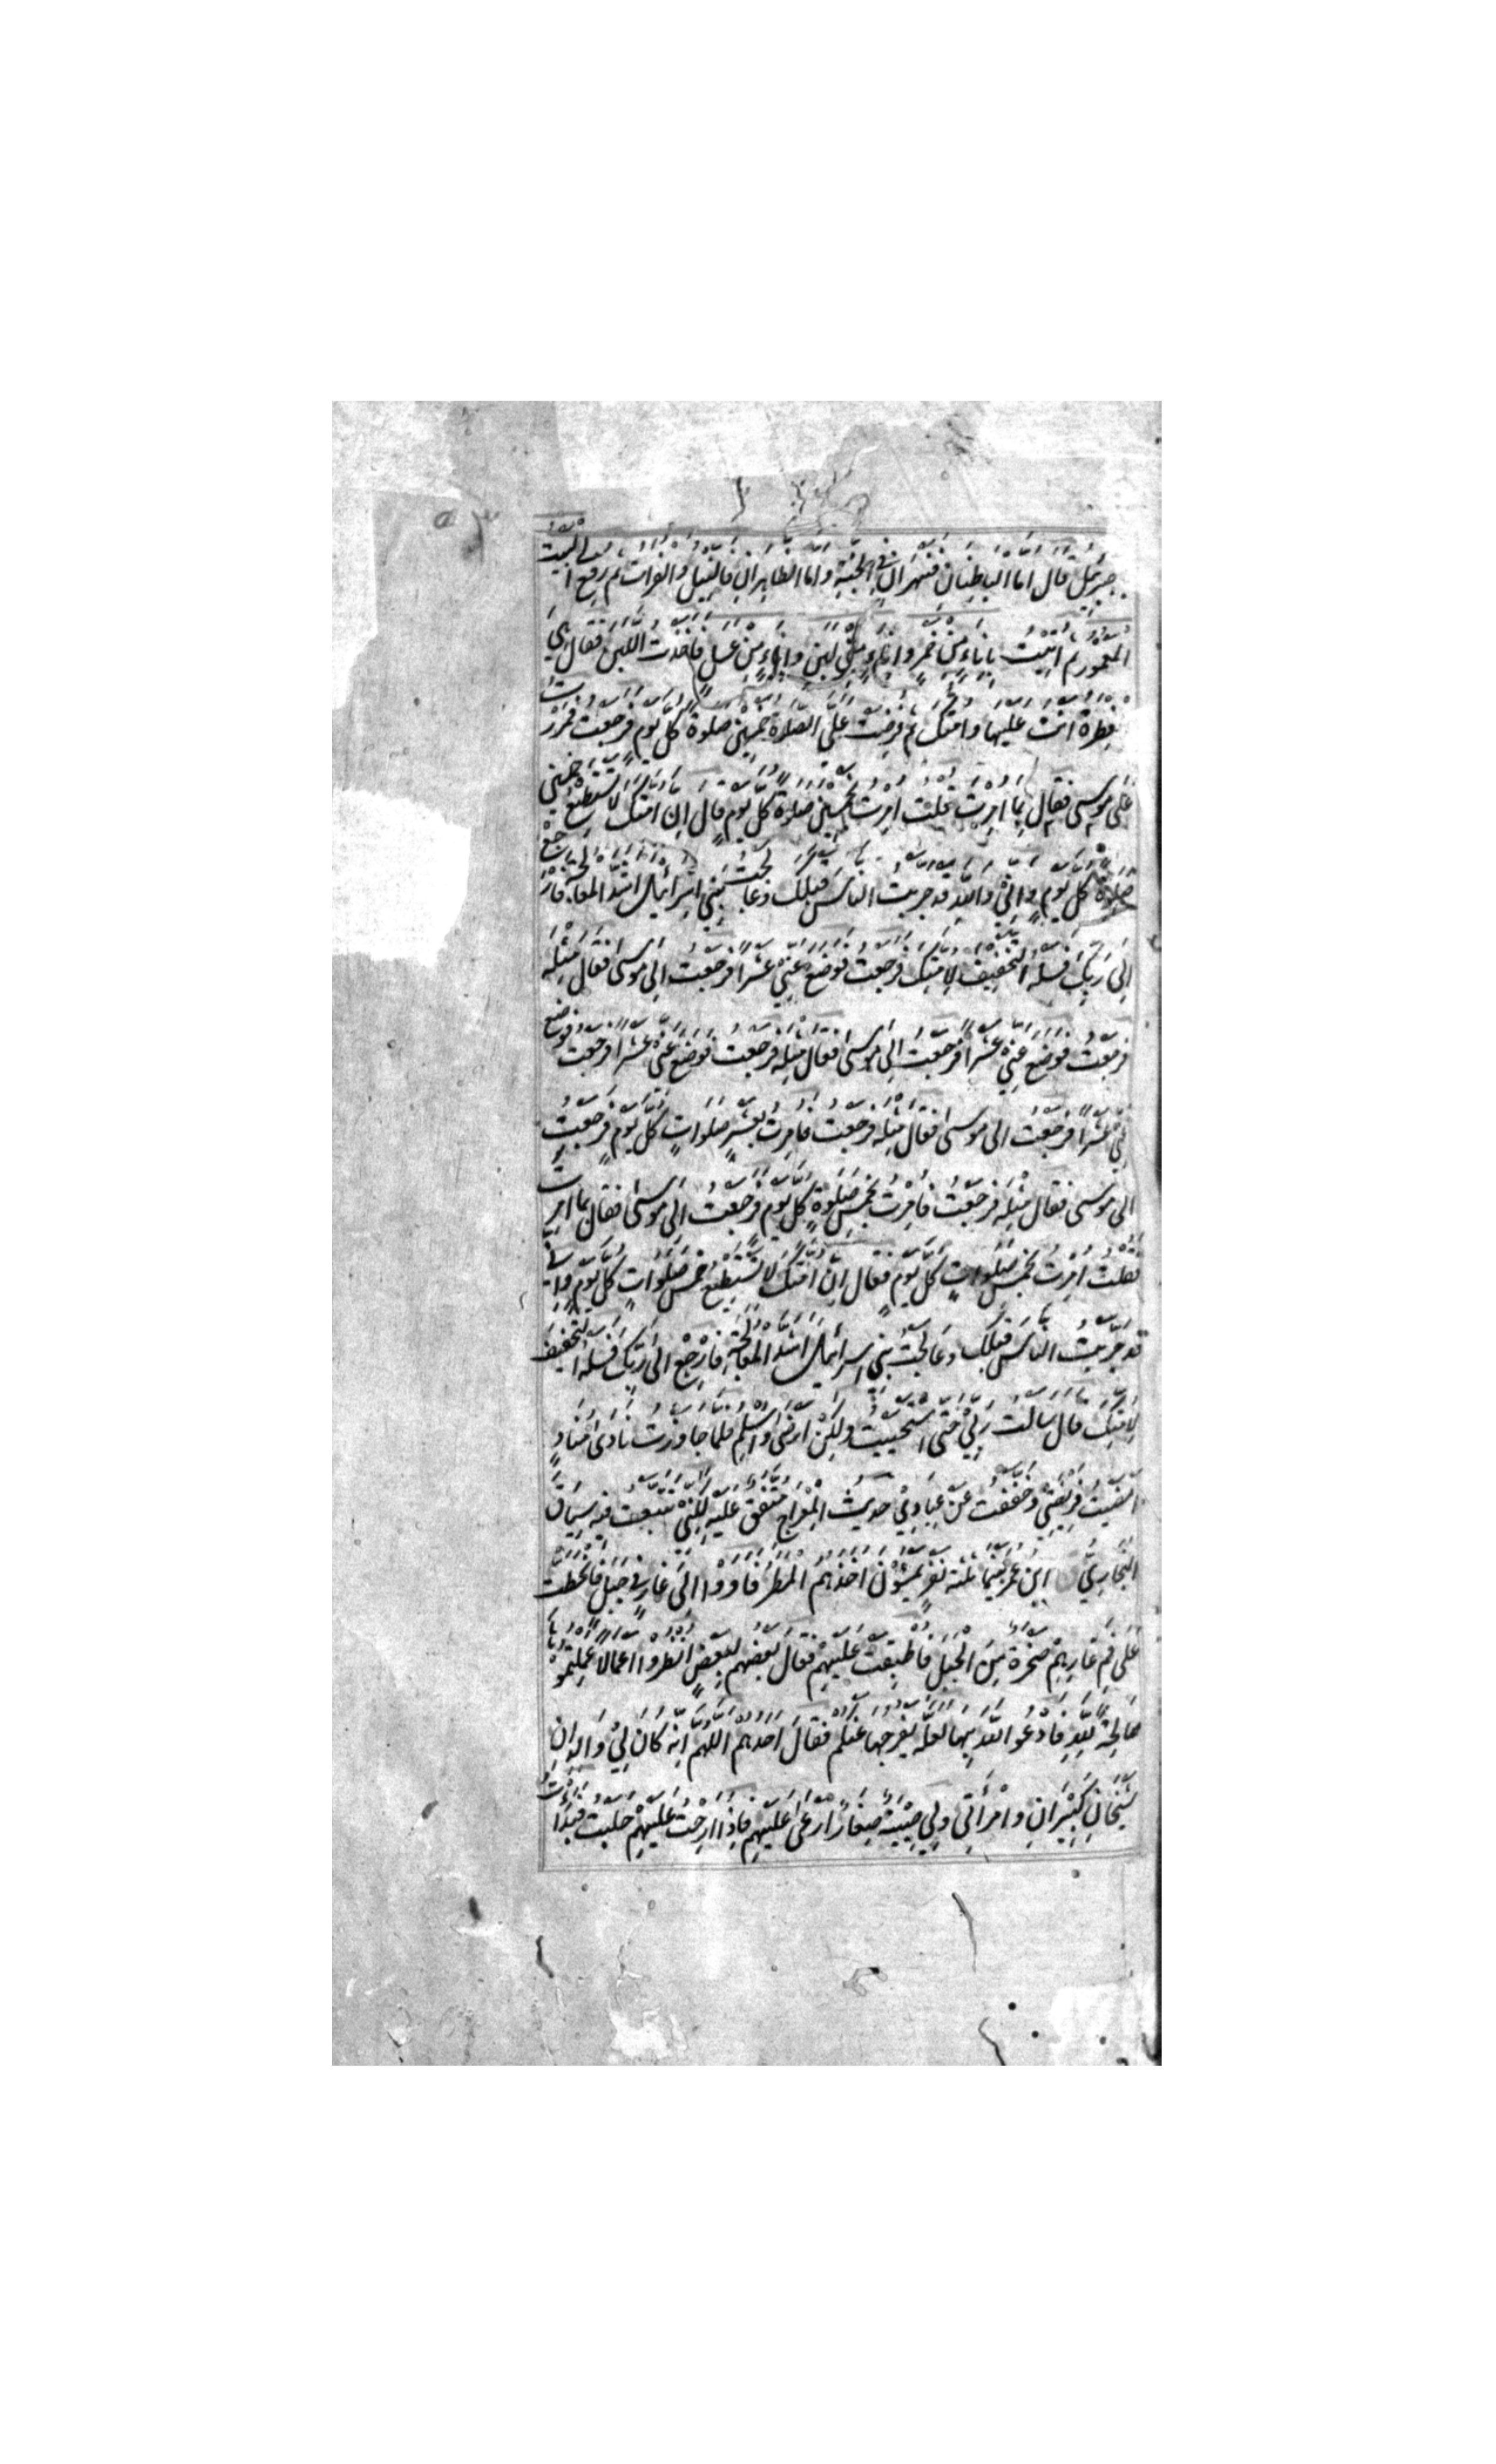 جبرئيل قال اما الباطنان فنهران في الجنة واما الظاهران فالنيل والفرات ثم رفع لي البيت
المعمور ثم اتيت باناء من خمر واناء من لبن واناء من عسل فاخذت اللبن فقال هي
فطرة انت عليها وامتك ثم فرضت على الصلاة خمسين صلوة كل يوم فرجعت فمررت
على موسى فقال بما امرت قلت امرت بخمسين صلوة كل يوم قال ان امتك لا تستطيع خمسين
صلوة كل يوم واني والله قد جربت الناس قبلك وعالجت بني اسرائيل اشد المعالجة فارجع
الى ربك فسله التخفيف لامتك فرجعت فوضع عني عشرا فرجعت الى موسى فقال مثله
فرجعت فوضع عني عشرا فرجعت الى موسى فقال مثله فرجعت فوضع عني عشرا فرجعت فوضع
عني عشرا فرجعت الى موسى فقال مثله فرجعت فامرت بعشر صلوات كل يوم فرجعت
الى موسى فقال مثله فرجعت فامرت بخمس صلوة كل يوم فرجعت الى موسى فقال بما امرت
فقلت امرت بخمس صلوات كل يوم فقال ان امتك لا تستطيع خمس صلوات كل يوم واني
قد جربت الناس قبلك وعالجت بني اسرائيل اشد المعالجة فارجع الى ربك فسله التخفيف
لامتك قال سالت ربي حتى استحييت ولكن ارضى واسلم فلما جاوزت نادى مناد
امضيت فريضتي وخففت عن عبادي حديث المعراج متفق عليه لكني تتبعت فيه سياق
البخاري ق ابن عمر بينما ثلثة نفر يمشون اخذهم المطر فاووا الى غار في جبل فانحطت
على فم غارهم صخرة من الجبل فاطبقت عليهم فقال بعضهم لبعض انظروا اعمالا عملتموها
صالحة لله فادعوا الله بها لعله يفرجها عنكم فقال احدهم اللهم انه كان لي والدان
شيخان كبيران وامراتي ولي صبية صغار ارعى عليهم فاذا ارحت عليهم حلبت فبدات